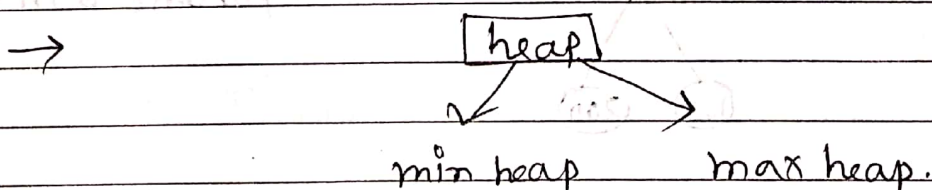 → heap
min heap max heap.